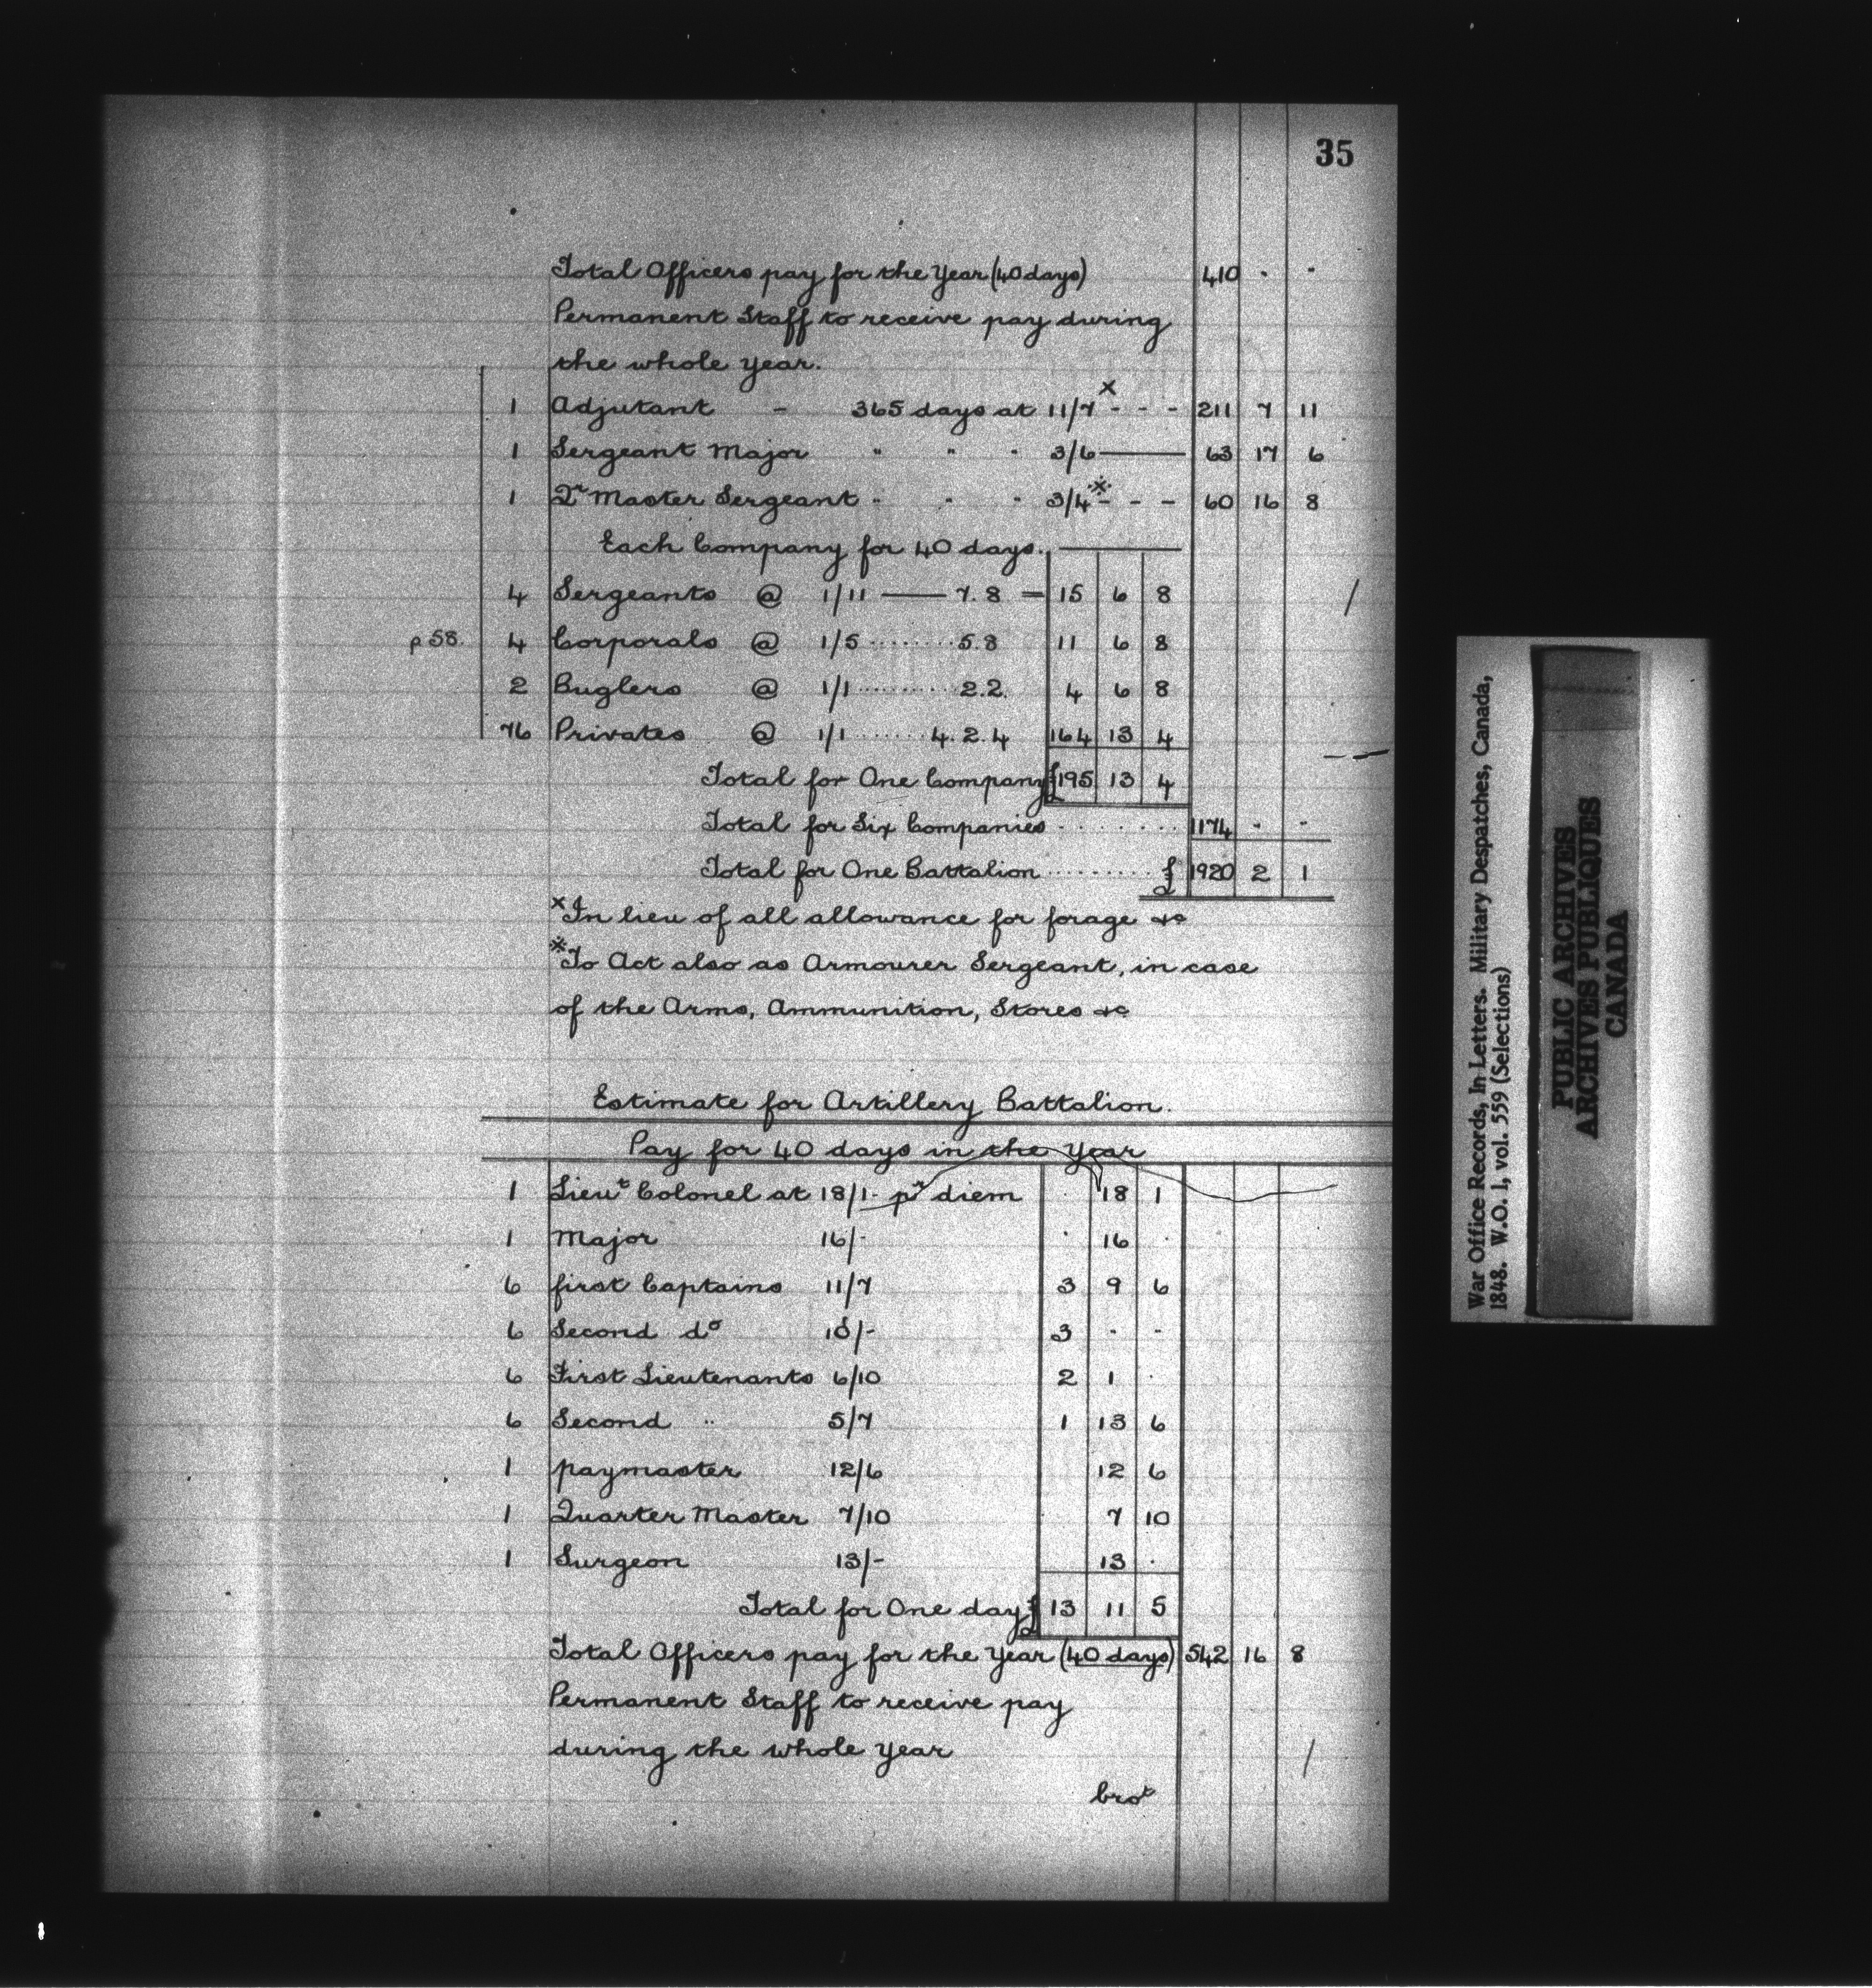 35
Total Officers pay for the Year (40 days) 410 . .
Permanent Staff to receive pay during
the whole year.
1 Adjutant - 365 days at 11/7 x - - - 211 7 11
1 Sergeant Major " " " 3/6 — 63 17 6
1 Qr Master Sergeant " " " 3/4 ※ - - - 60 16 8
Each Company for 40 days. —
4 Sergeants @ 1/11 — 7.8 — 15 6 8
p 58. 4 Corporals @ 1/5 ........ 5.8 11 6 8
2 Buglers @ 1/1 ......... 2.2. 4 6 8
76 Privates @ 1/1 ....... 4.2.4 164 13 4
Total for One Company £195 13 4
Total for Six Companies ........ 1174 - -
Total for One Battalion ......... £ 1920 2 1
x In lieu of all allowance for forage &c
※ To Act also as Armourer Sergeant, in case
of the Arms, Ammunition, Stores &c
Estimate for Artillery Battalion.
Pay for 40 days in the Year
1 Lieut Colonel at 18/1- pr diem . 18 1
1 Major 16/- . 16 .
6 first Captains 11/7 3 9 6
6 Second do 10/- 3 - -
6 First Lieutenants 6/10 2 1 .
6 Second " 5/7 1 13 6
1 paymaster 12/6 12 6
1 Quarter Master 7/10 7 10
1 Surgeon 13/- 13 .
Total for One day £ 13 11 5
Total Officers pay for the Year (40 days) 542 16 8
Permanent Staff to receive pay
during the whole Year
brot
War Office Records, In Letters. Military Despatches, Canada,
1848. W.O. 1, vol. 559 (Selections)
PUBLIC ARCHIVES
ARCHIVES PUBLIQUES
CANADA